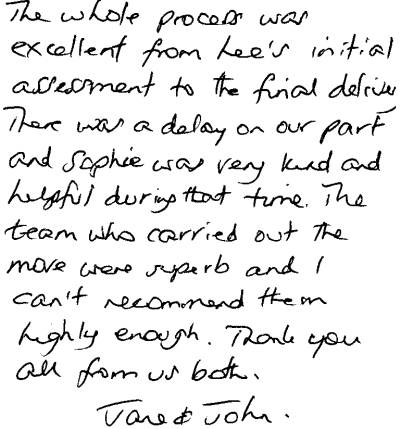 The whole process was
excellent from Lee's initial
assessment to the final delivery
There was a delay on our part
and Sophie was very kind and
helpful during that time. The
team who carried out the
move were superb and I
can't recommend them
highly enough. Thank you
all from us both.
Jane & John.